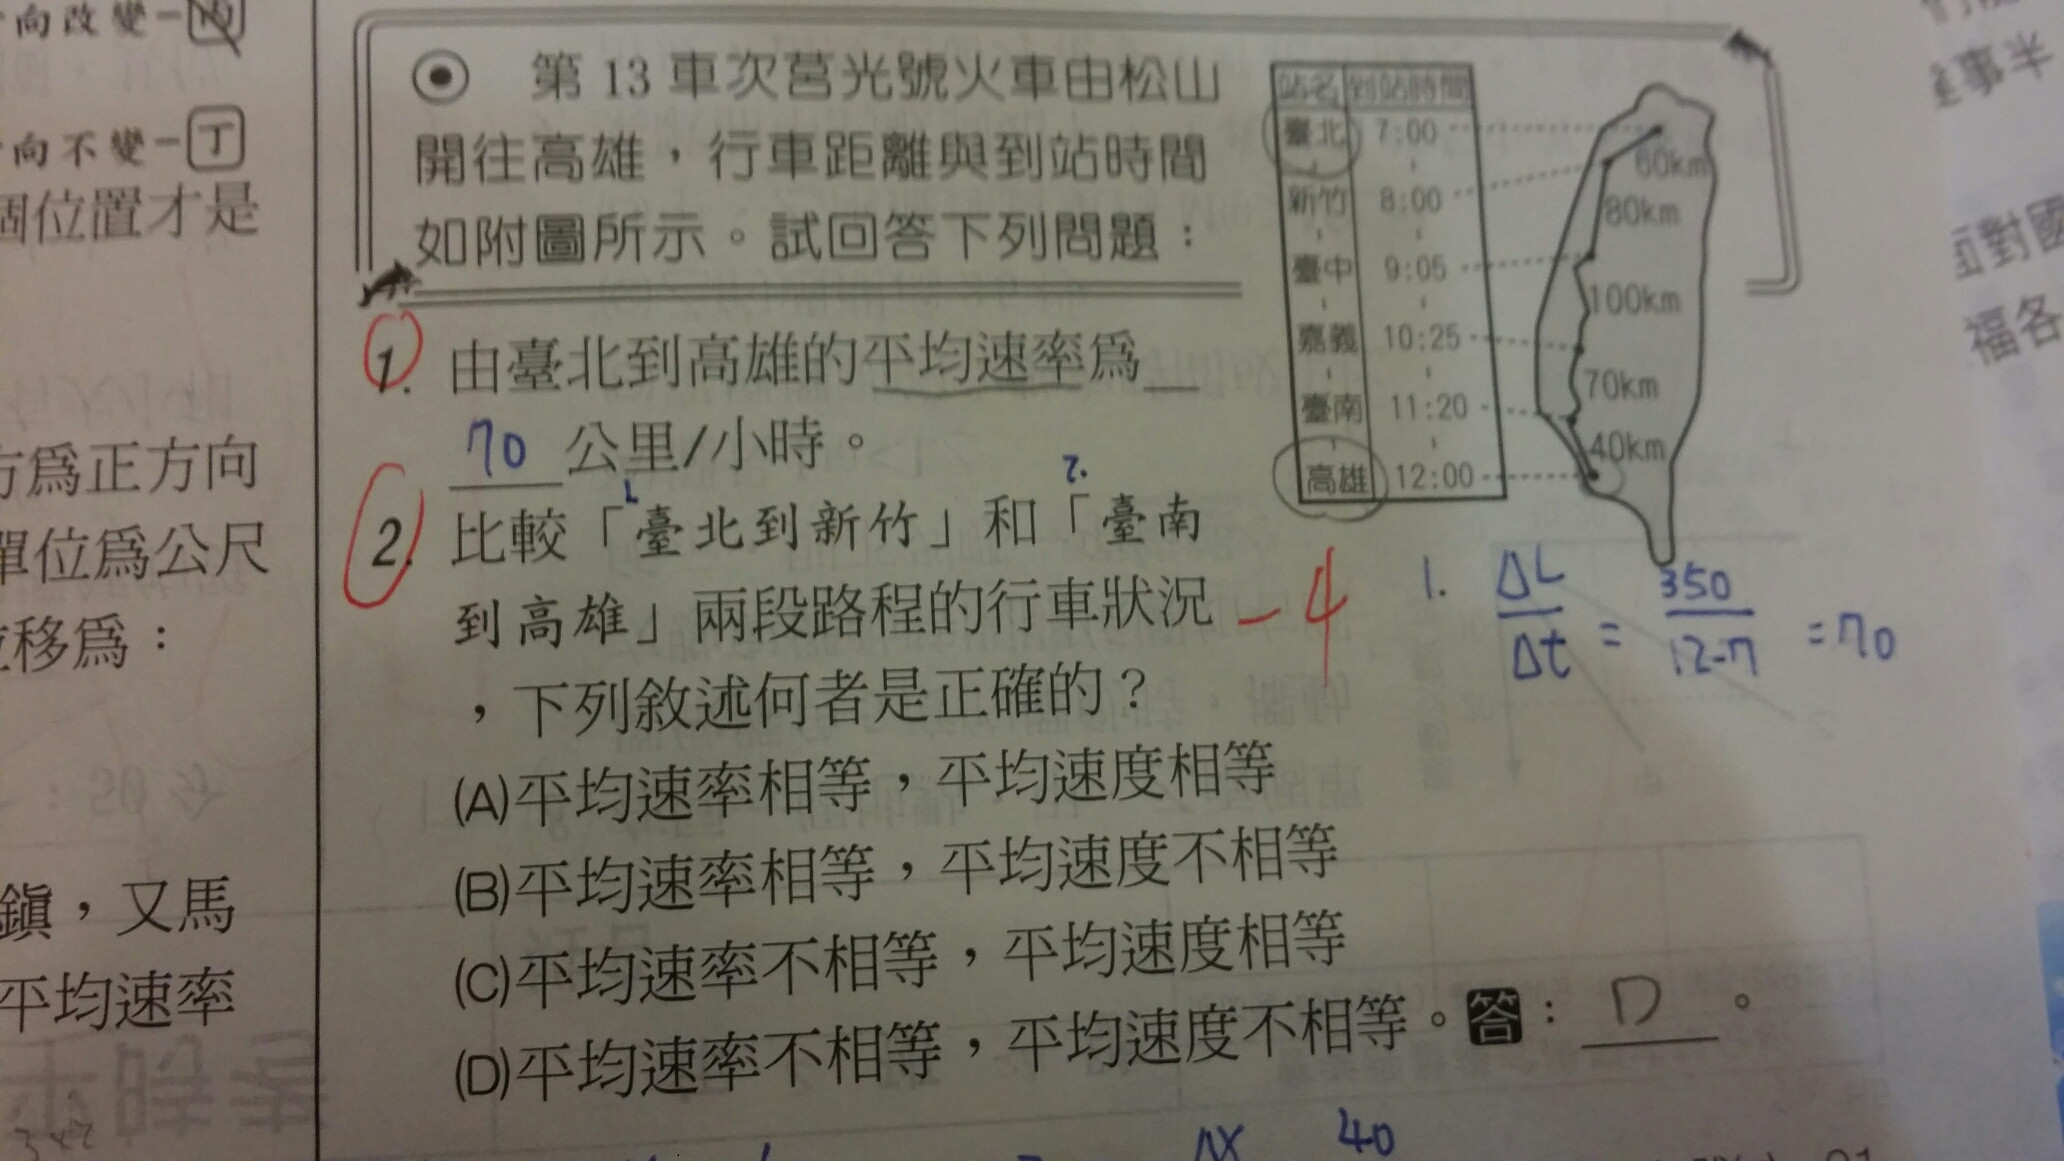 向改變-丙
向不變-丁
個位置才是
方為正方向
單位為公尺
位移為：
鎮，又馬
平均速率
⊙ 第 13 車次莒光號火車由松山
開往高雄，行車距離與到站時間
如附圖所示。試回答下列問題：
站名 到站時間
臺北 7:00
新竹 8:00
臺中 9:05
嘉義 10:25
臺南 11:20
高雄 12:00
60km
80km
100km
70km
40km
1. 由臺北到高雄的平均速率為
70 公里/小時。
2. 比較「臺北到新竹」和「臺南
到高雄」兩段路程的行車狀況
，下列敘述何者是正確的？
(A)平均速率相等，平均速度相等
(B)平均速率相等，平均速度不相等
(C)平均速率不相等，平均速度相等
(D)平均速率不相等，平均速度不相等。答：D。
-4
1. ΔL/Δt = 350/12-7 = 70
ΔX 40
事半
面對國
福各